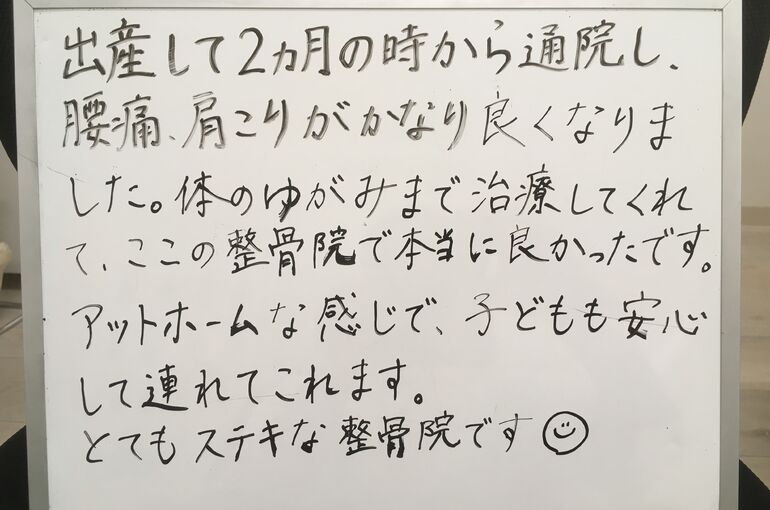 出産して2ヵ月の時から通院し、
腰痛、肩こりがかなり良くなりま
した。体のゆがみまで治療してくれ
て、ここの整骨院で本当に良かったです。
アットホームな感じで、子どもも安心
して連れてこれます。
とてもステキな整骨院です